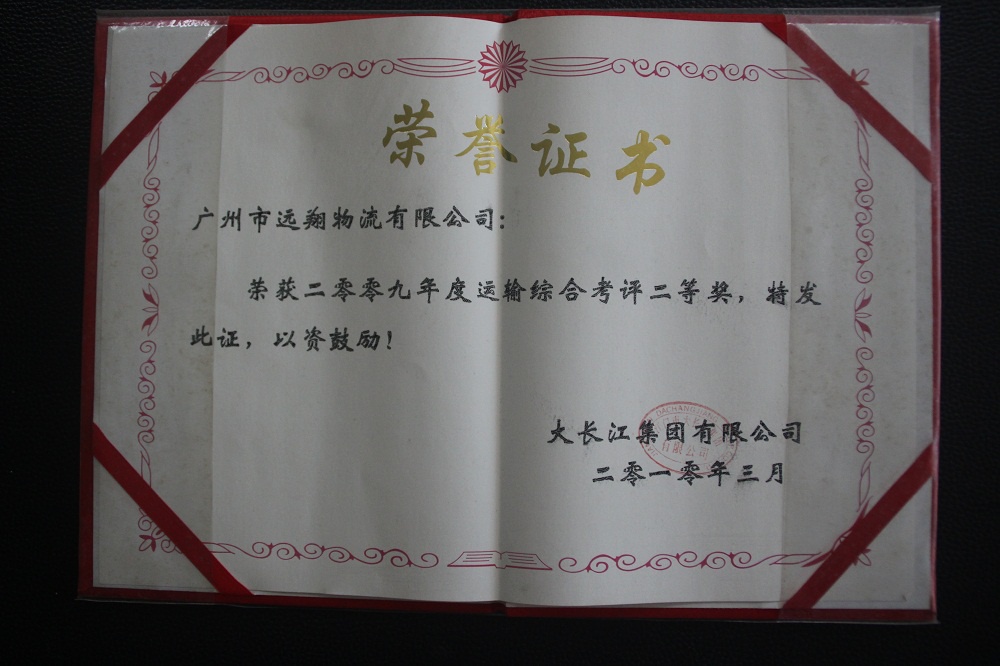 荣誉证书
广州市远翔物流有限公司：
荣获二零零九年度运输综合考评二等奖，特发
此证，以资鼓励！
大长江集团有限公司
二零一零年三月
DACHANGJIANG
有限公司